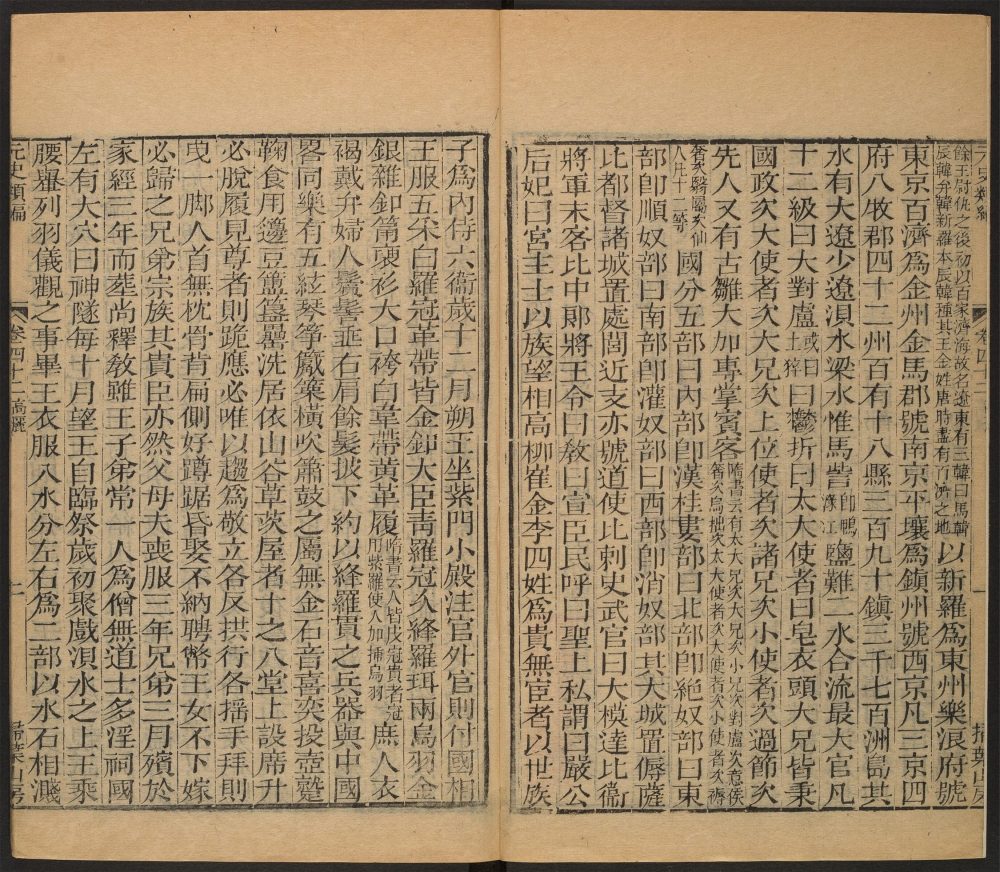 餘王尉仇之後初以百家濟海故名遼東有三韓曰馬韓
辰韓弁韓新羅本辰韓種其王金姓唐時盡有百濟之地
以新羅為東州樂浪府號
東京百濟為金州金馬郡號南京平壤為鎮州號西京凡三京四
府八牧郡四十二州百有十八縣三百九十鎮三千七百洲島其
水有大遼少遼浿水梁水惟馬訾卽鴨綠江鹽難二水合流最大官凡
十二級曰大對盧或曰土捽曰鬱折曰太大使者曰皂衣頭大兄皆秉
國政次大使者次大兄次上位使者次諸兄次小使者次過節次
先人又有古雛大加專掌賓客隋書云有太大兄次大兄次小兄次對盧次意侯
奢次烏拙次太大使者次大使者次小使者次褥
奢次翳屬次仙
人凡十二等
國分五部曰內部卽漢桂婁部曰北部卽絕奴部曰東
部卽順奴部曰南部卽灌奴部曰西部卽消奴部其大城置傉薩
比都督諸城置處閭近支亦號道使比刺史武官曰大模達比衞
將軍末客比中郎將王令曰教曰宣臣民呼曰聖上私謂曰嚴公
后妃曰宮主士以族望相高柳崔金李四姓為貴無宦者以世族
元史類編
卷四十二
一
掃葉山房
子為內侍六衞歲十二月朔王坐紫門小殿注官外官則付國相
王服五采白羅冠革帶皆金釦大臣青羅冠次絳羅珥兩鳥羽金
銀雜釦筩褏衫大口袴白韋帶黃革履隋書云人皆皮冠貴者冠
用紫羅使人加揷鳥羽
庶人衣
褐戴弁婦人鬒髻垂右肩餘髮披下約以絳羅貫之兵器與中國
畧同樂有五絃琴箏觱篥橫吹簫鼓之屬無金石音喜奕投壺蹵
鞠食用籩豆簠簋罍洗居依山谷草茨屋者十之八堂上設席升
必脫履見尊者則跪應必唯以趨為敬立各反拱行各搖手拜則
曳一腳人首無枕骨背扁側好蹲踞昏娶不納聘幣王女不下嫁
必歸之兄弟宗族其貴臣亦然父母夫喪服三年兄弟三月殯於
家經三年而塟尚釋教雖王子弟常一人為僧無道士多淫祠國
左有大穴曰神隧每十月望王自臨祭歲初聚戲浿水之上王乘
腰轝列羽儀觀之事畢王衣服入水分左右為二部以水石相濺
元史類編
卷四十二 高麗
二
掃葉山房